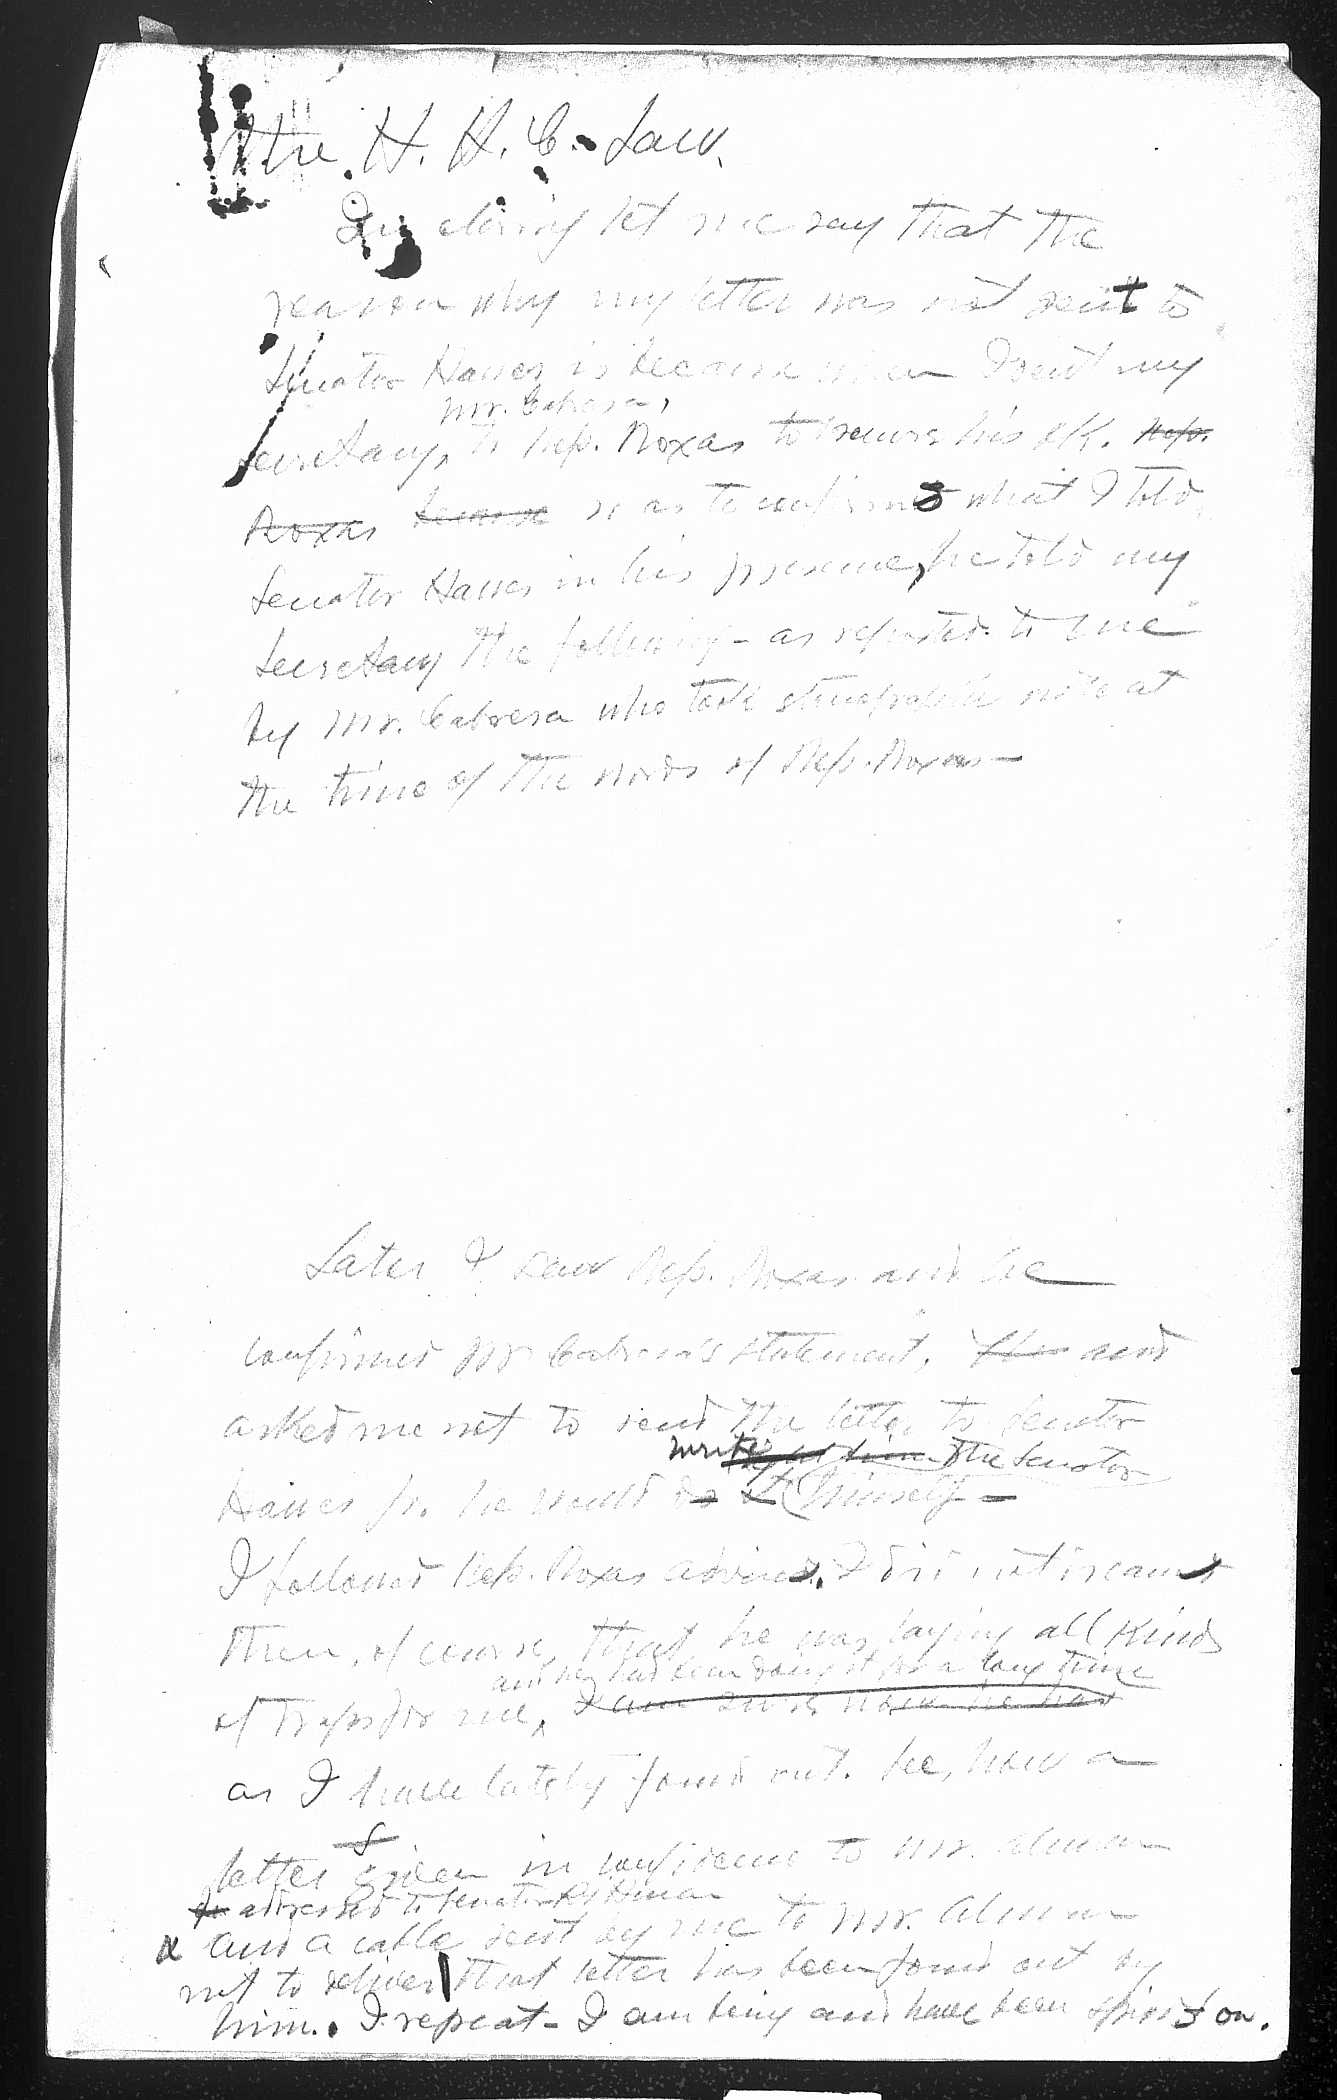 the H. H. C. Law.
In closing let me say that the
reason why my letter was not sent to
Senator Hawes is because when I sent my
Mr. Cabrera,
secretary, to Rep. Roxas to secure his O.K. Rep.
Roxas because so as to confirm what I told
Senator Hawes in his presence, he told my
secretary the following - as reported to me
by Mr. Cabrera who took stenographic note at
the time of the words of Rep. Roxas -
Later I saw Rep. Roxas and he
confirmed Mr Cabrera's statement, and
asked me not to send the letter to Senator
write the Senator
Hawes for he would do it himself -
I followed Rep. Roxas advice. I did not
then, of course, that he was laying all kinds
and he had been doing it for a long time
of traps for me, I am sure now he has
as I have lately found out. See, how a
letter given in confidence to Mr.
addressed to Senator
and a cable sent by me to Mr.
not to deliver that letter has been found out by
him. I repeat - I am being and have been spied on.